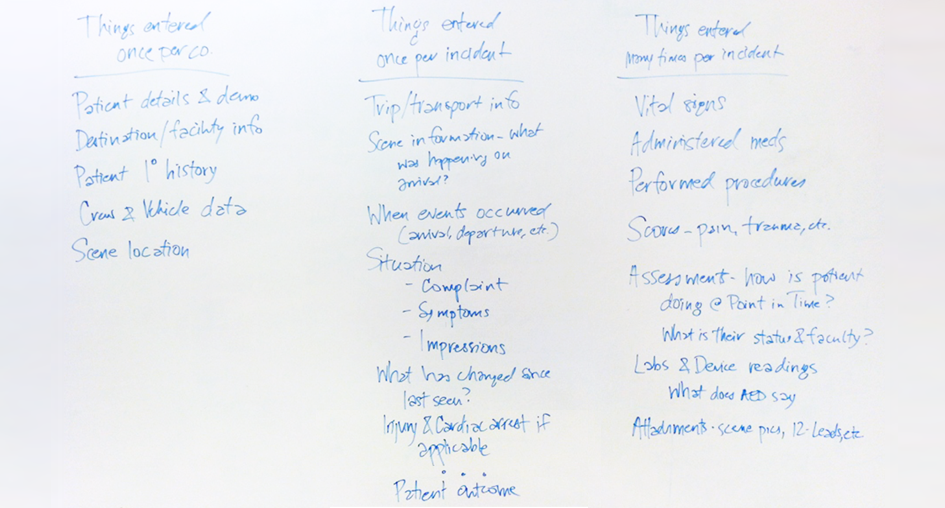 Things entered
once per co.
Patient details & demo
Destination/facility info
Patient 1° history
Crew & Vehicle data
Scene location
Things entered
once per incident
Trip/transport info
Scene information - what
was happening on
arrival?
When events occurred
(arrival, departure, etc.)
Situation
- Complaint
- Symptoms
- Impressions
What has changed since
last seen?
Injury & Cardiac arrest if
applicable
...
Patient outcome
Things entered
Many times per incident
Vital signs
Administered meds
Performed procedures
Scores - pain, trauma, etc.
Assessment - how is patient
doing @ Point in Time?
What is their status & faculty?
Labs & Device readings
What does AED say
Attachments - scene pics, 12-Leads, etc